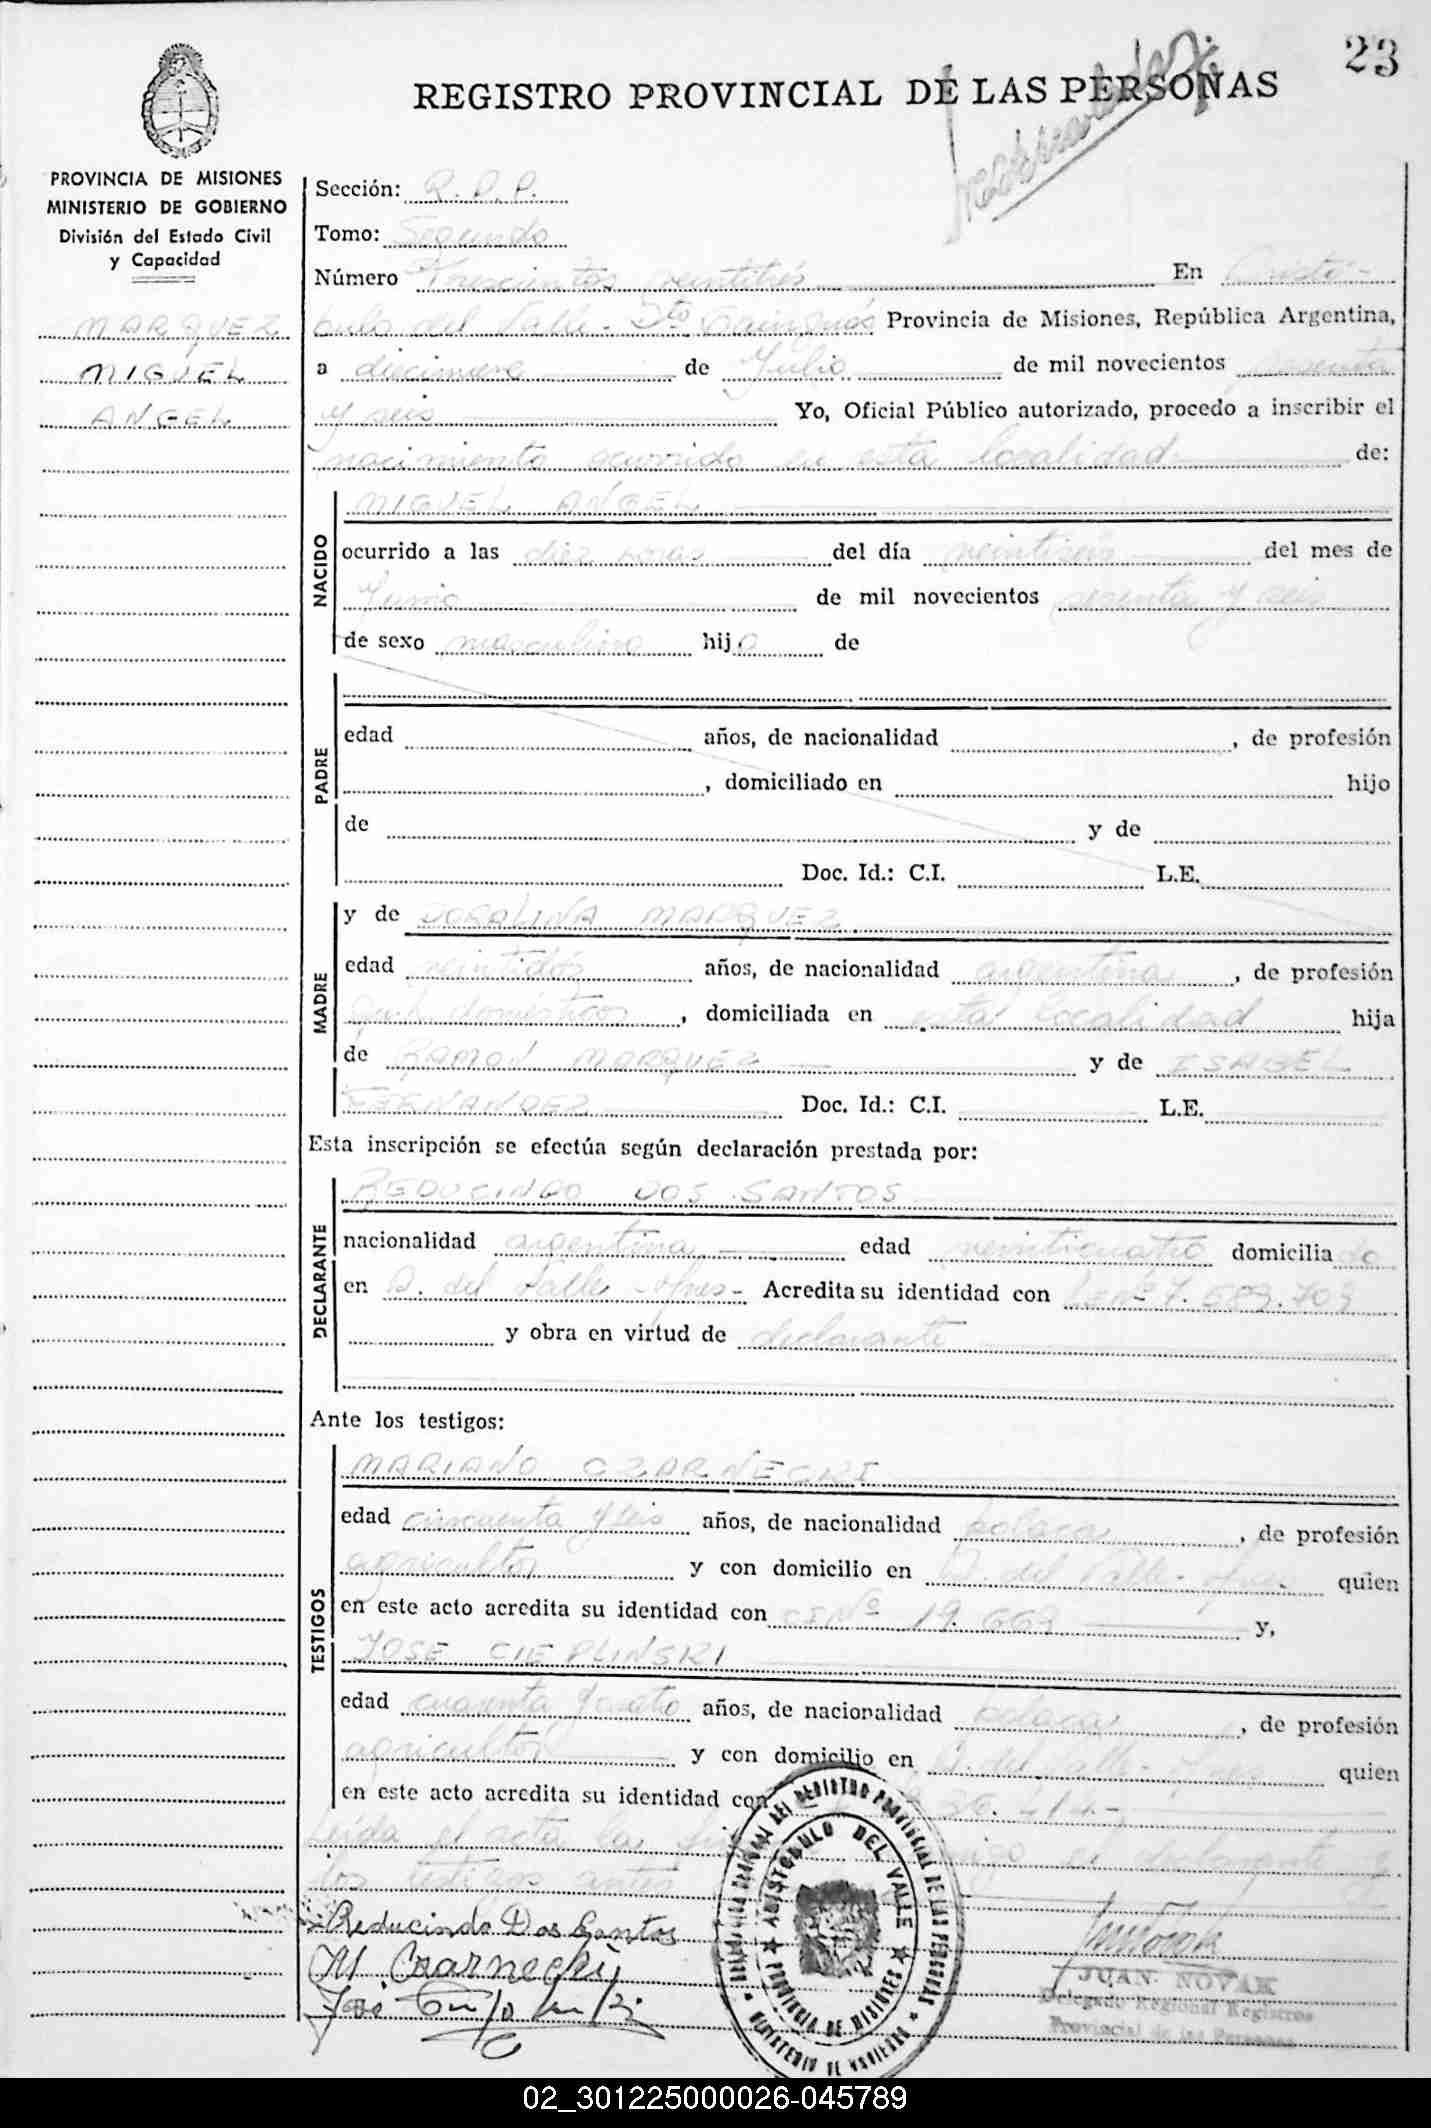 23
REGISTRO PROVINCIAL DE LAS PERSONAS
PROVINCIA DE MISIONES
MINISTERIO DE GOBIERNO
División del Estado Civil
y Capacidad
MARQUEZ
MIGUEL
ANGEL
Sección: R.P.P.
Tomo: Segundo
Número Trescientos veintitrés En Aristó-
bulo del Valle - Dto Cainguás Provincia de Misiones, República Argentina,
a diecinueve de Julio de mil novecientos sesenta
y seis Yo, Oficial Público autorizado, procedo a inscribir el
nacimiento ocurrido en esta localidad de:
NACIDO
MIGUEL ANGEL
ocurrido a las diez horas del día veintiseis del mes de
Junio de mil novecientos sesenta y seis
de sexo masculino hijo de
PADRE
edad años, de nacionalidad , de profesión
, domiciliado en hijo
de y de
Doc. Id.: C.I. L.E.
MADRE
y de DORALINA MARQUEZ
edad veintidós años, de nacionalidad argentina, de profesión
domésticos, domiciliada en esta localidad hija
de RAMON MARQUEZ y de ISABEL
FERNANDEZ Doc. Id.: C.I. L.E.
Esta inscripción se efectúa según declaración prestada por:
DECLARANTE
REDUCINDO DOS SANTOS
nacionalidad argentina edad veinticuatro domiciliado
en A. del Valle - Mnes- Acredita su identidad con
y obra en virtud de declarante
Ante los testigos:
TESTIGOS
MARIANO CZARNECKI
edad cincuenta y seis años, de nacionalidad polaca, de profesión
agricultor y con domicilio en A. del Valle - Mnes quien
en este acto acredita su identidad con CI Nº 19.669 y,
JOSE CIEPLINSKI
edad cuarenta y cuatro años, de nacionalidad polaca, de profesión
agricultor y con domicilio en A. del Valle - Mnes quien
en este acto acredita su identidad con 36.414.-
Leída el acta la el declarante y
los testigos antes
Reducindo Dos Santos
M. Czarnecki
José
DELEGACION REGIONAL DEL REGISTRO PROVINCIAL DE LAS PERSONAS
MINISTERIO DE GOBIERNO
ARISTOBULO DEL VALLE
PROVINCIA DE MISIONES
JUAN NOVAK
Delegado Regional Registros
Provincial de las Personas
02_301225000026-045789